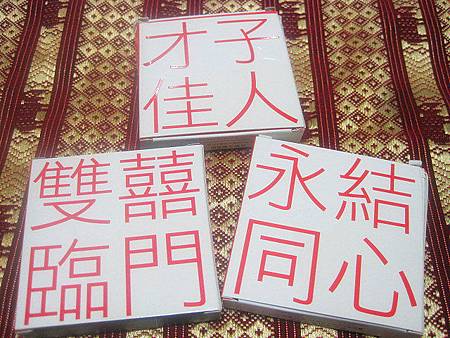 才子
佳人
雙囍
臨門
永結
同心